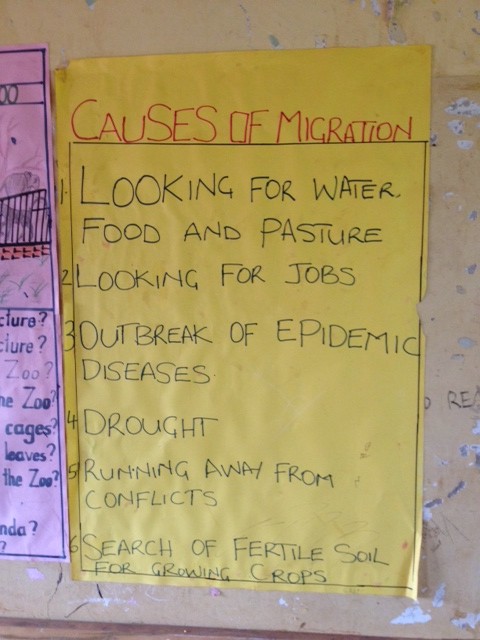 CAUSES OF MIGRATION
1. LOOKING FOR WATER,
FOOD AND PASTURE
2 LOOKING FOR JOBS
3 OUTBREAK OF EPIDEMIC
DISEASES
4 DROUGHT
5 RUNNING AWAY FROM
CONFLICTS
6 SEARCH OF FERTILE SOIL
FOR GROWING CROPS
cture?
cture?
Zoo?
he Zoo?
cages?
leaves?
the Zoo?
nda?
?